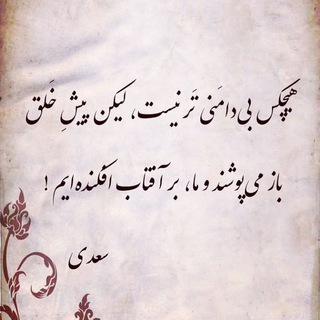 هیچکس بی‌دامَنی تَر نیست، لیکن پیشِ خَلق
باز می‌پوشند و ما، بر آفتاب افکنده‌ایم !
سعدی